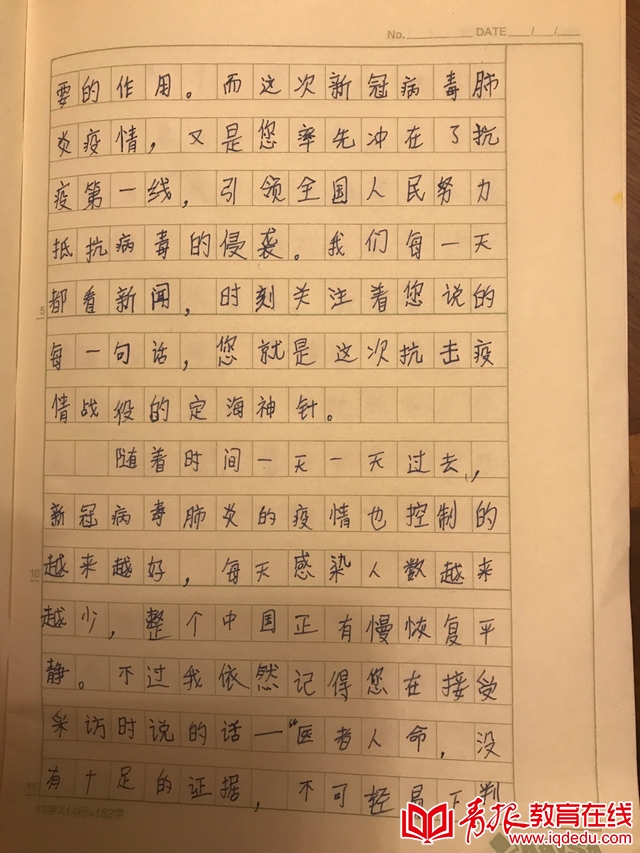 No. DATE / /
要的作用。而这次新冠病毒肺
炎疫情，又是您率先冲在了抗
疫第一线，引领全国人民努力
抵抗病毒的侵袭。我们每一天
5 都看新闻，时刻关注着您说的
每一句话，您就是这次抗击疫
情战役的定海神针。
随着时间一天一天过去，
新冠病毒肺炎的疫情也控制的
10 越来越好，每天感染人数越来
越少，整个中国正有慢恢复平
静。不过我依然记得您在接受
采访时说的话—“医者人命，没
14 有十足的证据，不可轻易下判
13字X14行=182字
青报教育在线
www.iqdedu.com